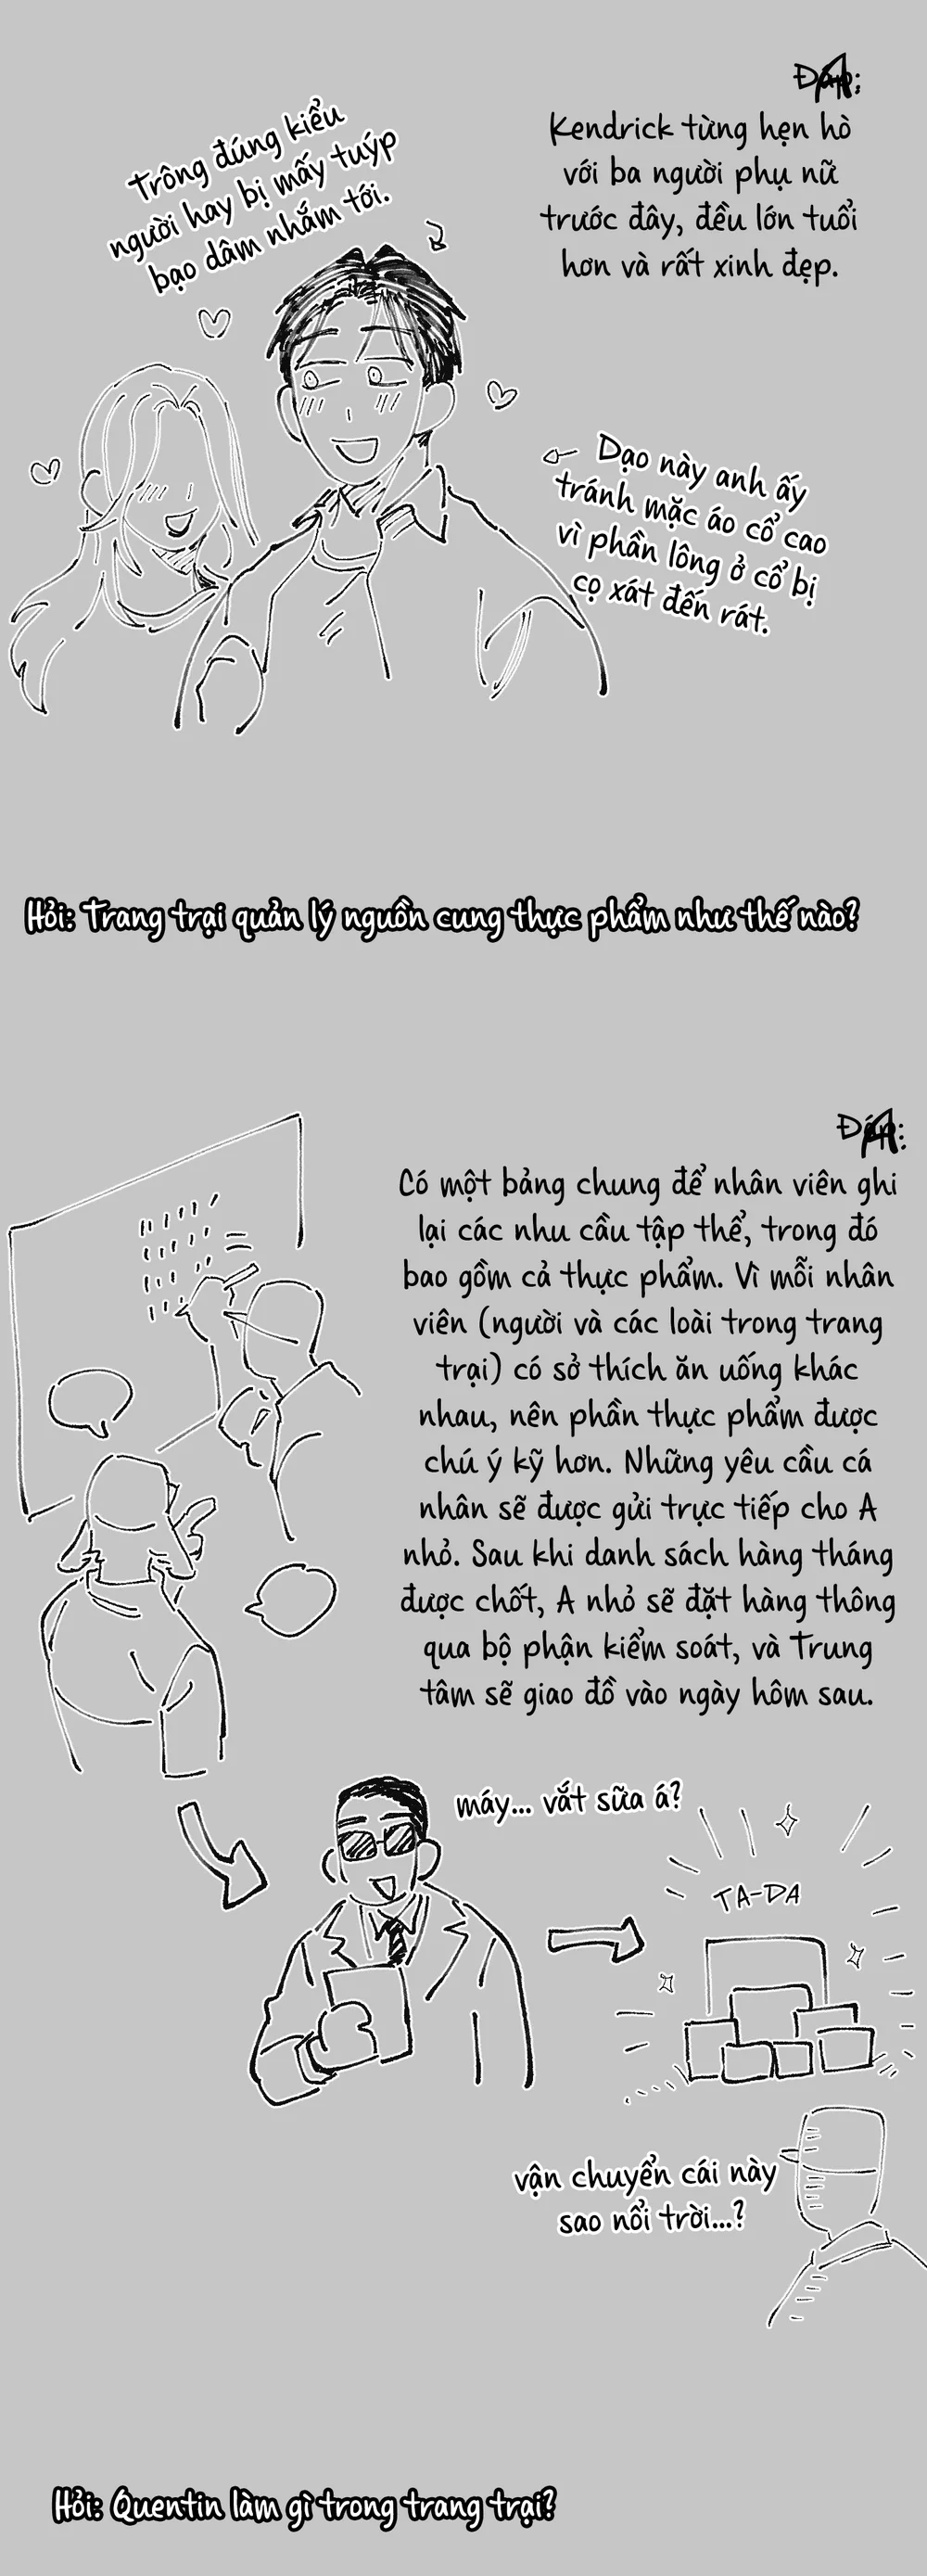 Đáp:
Kendrick từng hẹn hò
với ba người phụ nữ
trước đây, đều lớn tuổi
hơn và rất xinh đẹp.
Trông đúng kiểu
người hay bị mấy tuýp
bạo dâm nhắm tới.
Dạo này anh ấy
tránh mặc áo cổ cao
vì phần lông ở cổ bị
cọ xát đến rát.
Hỏi: Trang trại quản lý nguồn cung thực phẩm như thế nào?
Đáp:
Có một bảng chung để nhân viên ghi
lại các nhu cầu tập thể, trong đó
bao gồm cả thực phẩm. Vì mỗi nhân
viên (người và các loài trong trang
trại) có sở thích ăn uống khác
nhau, nên phần thực phẩm được
chú ý kỹ hơn. Những yêu cầu cá
nhân sẽ được gửi trực tiếp cho A
nhỏ. Sau khi danh sách hàng tháng
được chốt, A nhỏ sẽ đặt hàng thông
qua bộ phận kiểm soát, và Trung
tâm sẽ giao đồ vào ngày hôm sau.
máy... vắt sữa á?
TA-DA
vận chuyển cái này
sao nổi trời...?
Hỏi: Quentin làm gì trong trang trại?